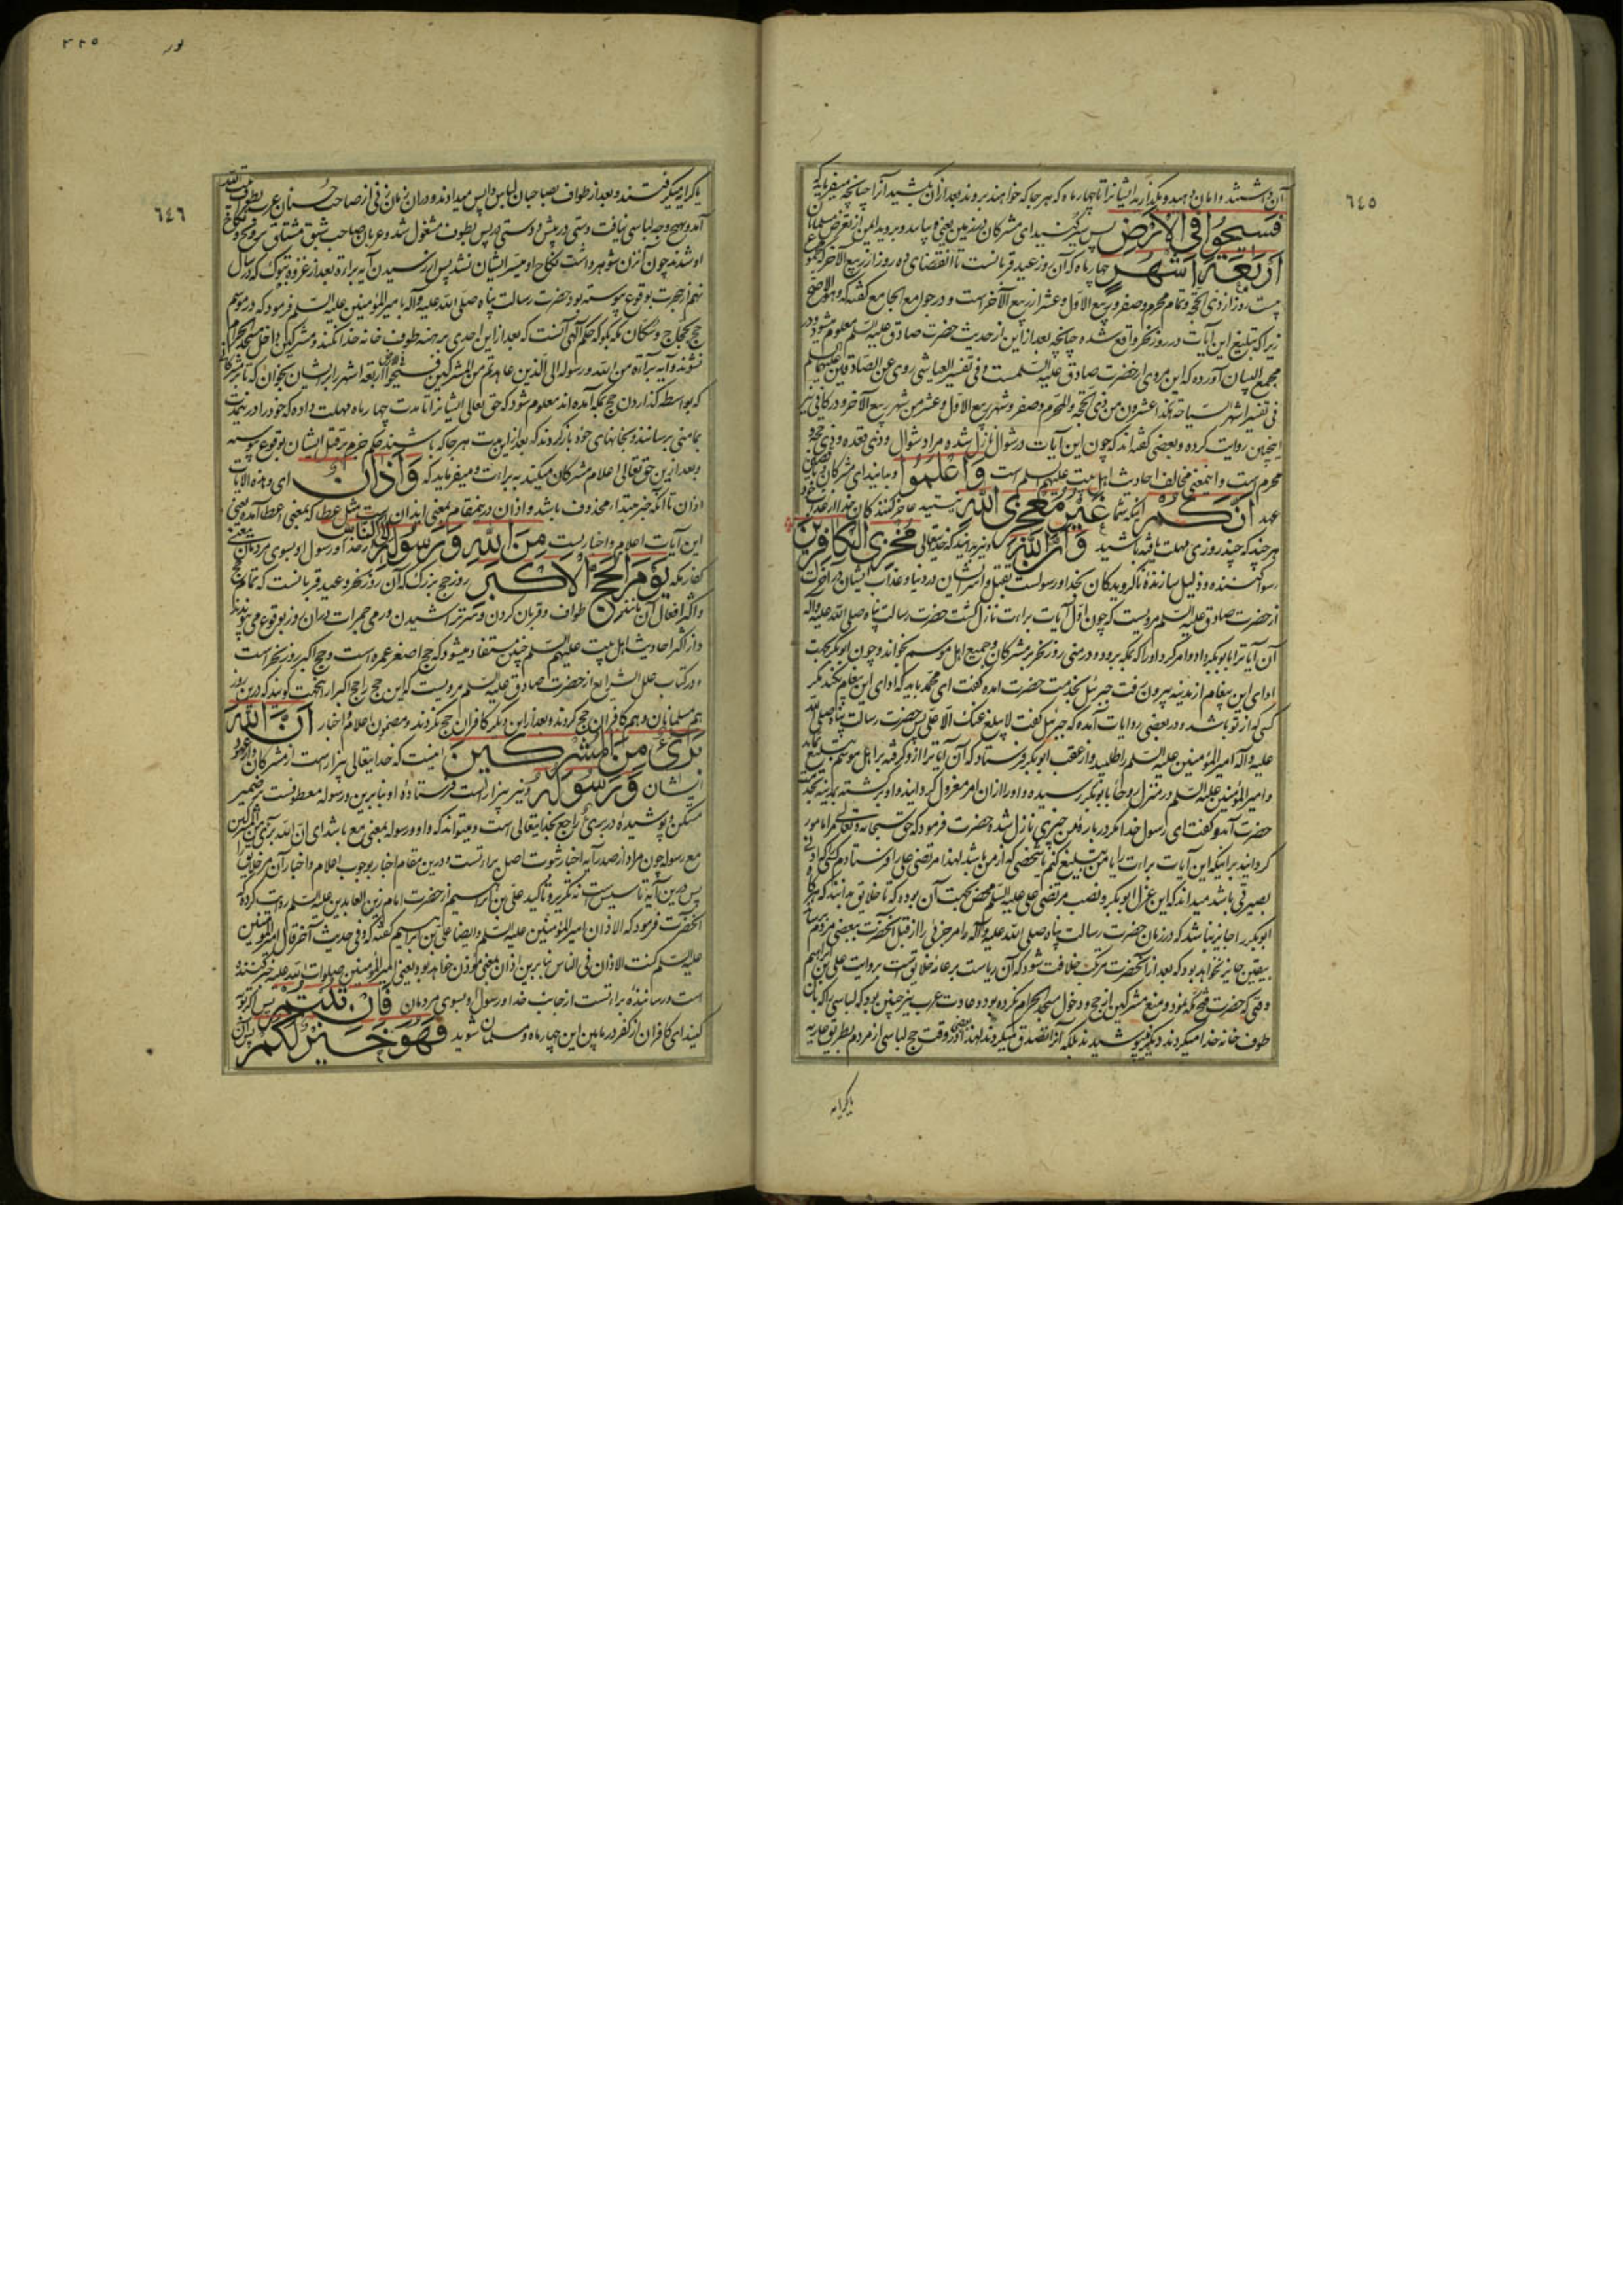 ٦٤٥
آن داشتند و امان دهید و بگذارید ایشانرا تا چهار ماه که هر جا که خواهند بروند بعد از آن بکشید آنرا چنانچه میفرماید که
فَسِيحُوا فِي الْأَرْضِ پس سیر کنید ای مشرکان در زمین یعنی
أَرْبَعَةَ أَشْهُرٍ چهار ماه که آن روز عید قربانست تا انقضای ده روز از ربیع الآخر
بیست روز از ذی الحجه و تمام محرم و صفر و ربیع الاول و عشر از ربیع الآخر است و در جوامع الجامع گفته که و هو الاصح
زیرا که تبلیغ این آیات در روز نحر واقع شده چنانچه بعد از این از حدیث حضرت صادق علیه السلم معلوم میشود و در
مجمع البیان آورده که این مروی از حضرت صادق علیه السلمست و فی تفسیر العیاشی روی عن الصادقین علیهما السلم
فی تفسیر اشهر السیاحة هکذا عشرون من ذی الحجه و المحرم و صفر و شهر ربیع الاول و عشر من شهر ربیع الآخر و در کافی نیز
اینچنین روایت کرده و بعضی گفته‌اند که چون این آیات در شوال نازل شده مراد شوال و ذی قعده و ذی حجه و
محرم است و اینمعنی مخالف احادیث اهل بیت علیهم سلم است وَاعْلَمُوا و بدانید ای مشرکان
عهد أَنَّكُمْ آنکه شما غَيْرُ مُعْجِزِي اللَّهِ نیستید عاجز کنندگان خدا از عذاب خود
هر چند که چند روزی مهلت یافته باشید وَأَنَّ اللَّهَ و نیز بدانید که خدایتعالی مُخْزِي الْكَافِرِينَ
رسوا کننده و ذلیل سازنده ناگرویدگان بخدا و رسولست بقتل و اسر ایشان در دنیا و عذاب ایشان در آخرت
از حضرت صادق علیه السلم مرویست که چون اول آیات براءت نازل گشت حضرت رسالت پناه صلی الله علیه و آله
آن آیاترا بابوبکر داد و امر کرد او را که بمکه برود و در منی روز نحر بر مشرکان و جمیع اهل موسم بخواند و چون ابوبکر بجهت
ادای این پیغام از مدینه بیرون رفت جبرئیل بخدمت حضرت آمده گفت ای محمد باید که ادای این پیغام نکند مگر
کسی که از تو باشد و در بعضی روایات آمده که جبرئیل گفت لا یبلغ عنک الا علی پس حضرت رسالت پناه صلی الله
علیه و اله امیر المؤمنین علیه السلم را طلبید و از عقب ابوبکر فرستاد که آن آیاترا ازو گرفته بر اهل موسم تبلیغ نماید
و امیر المؤمنین علیه السلم در منزل روحا بابوبکر رسیده و او را از ان امر معزول گردانید و او برگشته بمدینه بخدمت
حضرت آمد و گفت ای رسول خدا مگر در باره من چیزی نازل شده حضرت فرمود که حق سبحانه و تعالی مرا مامور
گردانید براینکه این آیات براءت را یا من تبلیغ کنم یا شخصی که از من باشد لهذا مرتضی علی را فرستادم
بصیرتی باشد میداند که این عزل ابوبکر و نصب مرتضی علی علیه السلم محض بجهت آن بوده که تا خلایق بدانند که هرگاه
ابوبکر را جایز نباشد که در زمان حضرت رسالت پناه صلی الله علیه و آله امر جزئی را از قبل آنحضرت ببعضی مردم
بیقین جایز نخواهد بود که بعد از آنحضرت مرتکب خلافت شود که آن ریاست بر عامه خلایق است بروایت علی بن ابراهیم
وقتی که حضرت فتح مکه نمود و منع مشرکین از حج و دخول مسجد الحرام نکرده بود و عادت عرب نیز چنین بود که لباسی را که بان
طوف خانه خدا میکردند دیگر نمیپوشیدند بلکه آنرا تصدق میکردند لهذا بعضی در وقت حج لباسی از مردم بطریق عاریه
یا کرایه
۳۲۵
٦٤٦
یا کرایه میگرفتند و بعد از طواف بصاحبان لباس واپس میدادند و در ان زمان زنی از صاحب حسنان عرب بطوف بیت الله
آمد و هیچ وجه لباسی نیافت دستی در پیش و دستی در پس بطوف مشغول شد و عربان صاحب شبق مشتاق
او شدند چون آنزن شوهر داشت نکاح او میسر ایشان نشد پس از رسیدن آیه براءة و بعد از غزوه تبوک که در سال
نهم از هجرت بوقوع پیوسته بود حضرت رسالت پناه صلی الله علیه و آله بامیر المؤمنین علیه السلم فرمود که در موسم
حج بحجاج و سکان مکه بگو که حکم آلهی آنست که بعد از این احدی برهنه طوف خانه خدا نکنند و مشرکین داخل مسجد الحرام
نشوند و آیه براءة من الله و رسوله الی الذین عاهدتم من المشرکین فسیحوا فی الارض اربعة اشهر را بر ایشان بخوان که تا بر مشرکان
که بواسطه گذاردن حج بمکه آمده‌اند معلوم شود که حق تعالی ایشانرا تا مدت چهار ماه مهلت داده که خود را درینمدت
بمامنی برسانند و بخانهای خود باز گردند که بعد از این مدت هر جا که باشند حکم جزم بر قتل ایشان بوقوع پیوسته
و بعد ازین حق تعالی اعلام مشرکان میکند به براءت و میفرماید که وَأَذَانٌ ای و هذه الآیات
اذان تا آنکه خبر مبتداء محذوف باشد و اذان درینمقام بمعنی ایذان است مثل عطا که بمعنی اعطا آمده یعنی
این آیات اعلام و اخبار یست مِنَ اللَّهِ وَرَسُولِهِ از خدا و رسول او إِلَى النَّاسِ بسوی مردمان یعنی
کفار مکه يَوْمَ الْحَجِّ الْأَكْبَرِ روز حج بزرگ که آن روز نحر و عید قربانست که تمامی حج
و اکثر افعال آن مانند طواف و قربان کردن و سر تراشیدن و رمی جمرات در ان روز بوقوع می پیوندد
و از اکثر احادیث اهل بیت علیهم السلم چنین مستفاد میشود که حج اصغر عمره است و حج اکبر روز نحر است
و در کتاب علل الشرایع از حضرت صادق علیه السلم مرویست که این حج را حج اکبر از انجهت گویند که درین روز
هم مسلمانان و هم کافران حج کردند و بعد از این دیگر کافران حج نکردند و مضمون اعلام و اخبار أَنَّ اللَّهَ
بَرِيءٌ مِنَ الْمُشْرِكِينَ اینست که خدایتعالی بیزار است از مشرکان و از عهود
ایشان وَرَسُولُهُ و نیز بیزار است فرستاده او بنابرین و رسوله معطوفست بر ضمیر
مستکن و پوشیده در بریء راجع بخدایتعالی است و میتواند که واو و رسوله بمعنی مع باشد ای ان الله بریء من المشرکین
مع رسوله چون مراد از صدر آیه اخبار ثبوت اصل براءتست و درین مقام اخبار بوجوب اعلام و اخبار آن بر خلایق
پس درین آیة تاسیس است نه تکریر و تاکید علی بن ابراهیم از حضرت امام زین العابدین علیه السلم روایت کرده که
آنحضرت فرمود که الاذان امیر المؤمنین علیه السلم و ایضا علی بن ابراهیم گفته که و فی حدیث آخر قال امیر المؤمنین
علیه السلم کنت الاذان فی الناس بنابرین اذان بمعنی مؤذن خواهد بود یعنی امیر المؤمنین صلوات الله علیه خبر کننده
است و رساننده براءتست از جانب خدا و رسول او بسوی مردمان فَإِنْ تُبْتُمْ پس اگر توبه
کنید ای کافران از کفر در مابین این چهار ماه و مسلمان شوید فَهُوَ خَيْرٌ لَكُمْ پس آن